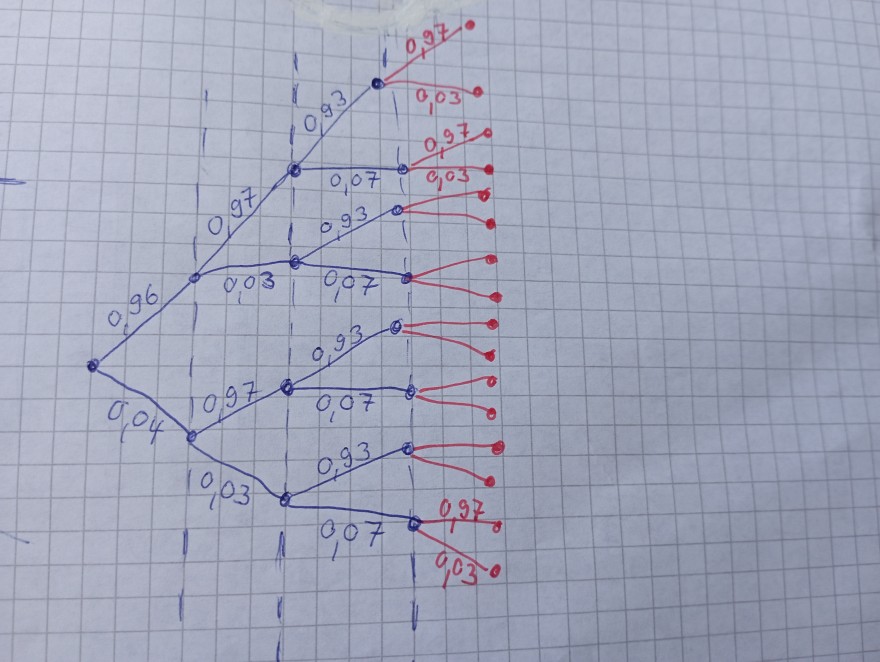 0,97
0,03
0,93
0,97
0,07
0,03
0,97
0,93
0,03
0,07
0,96
0,93
0,04
0,97
0,07
0,03
0,93
0,97
0,07
0,03